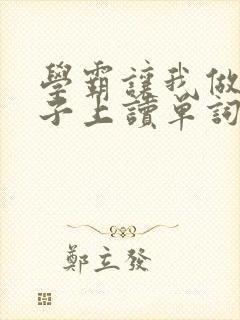 學霸讓我做
子上讀單詞
鄭立發